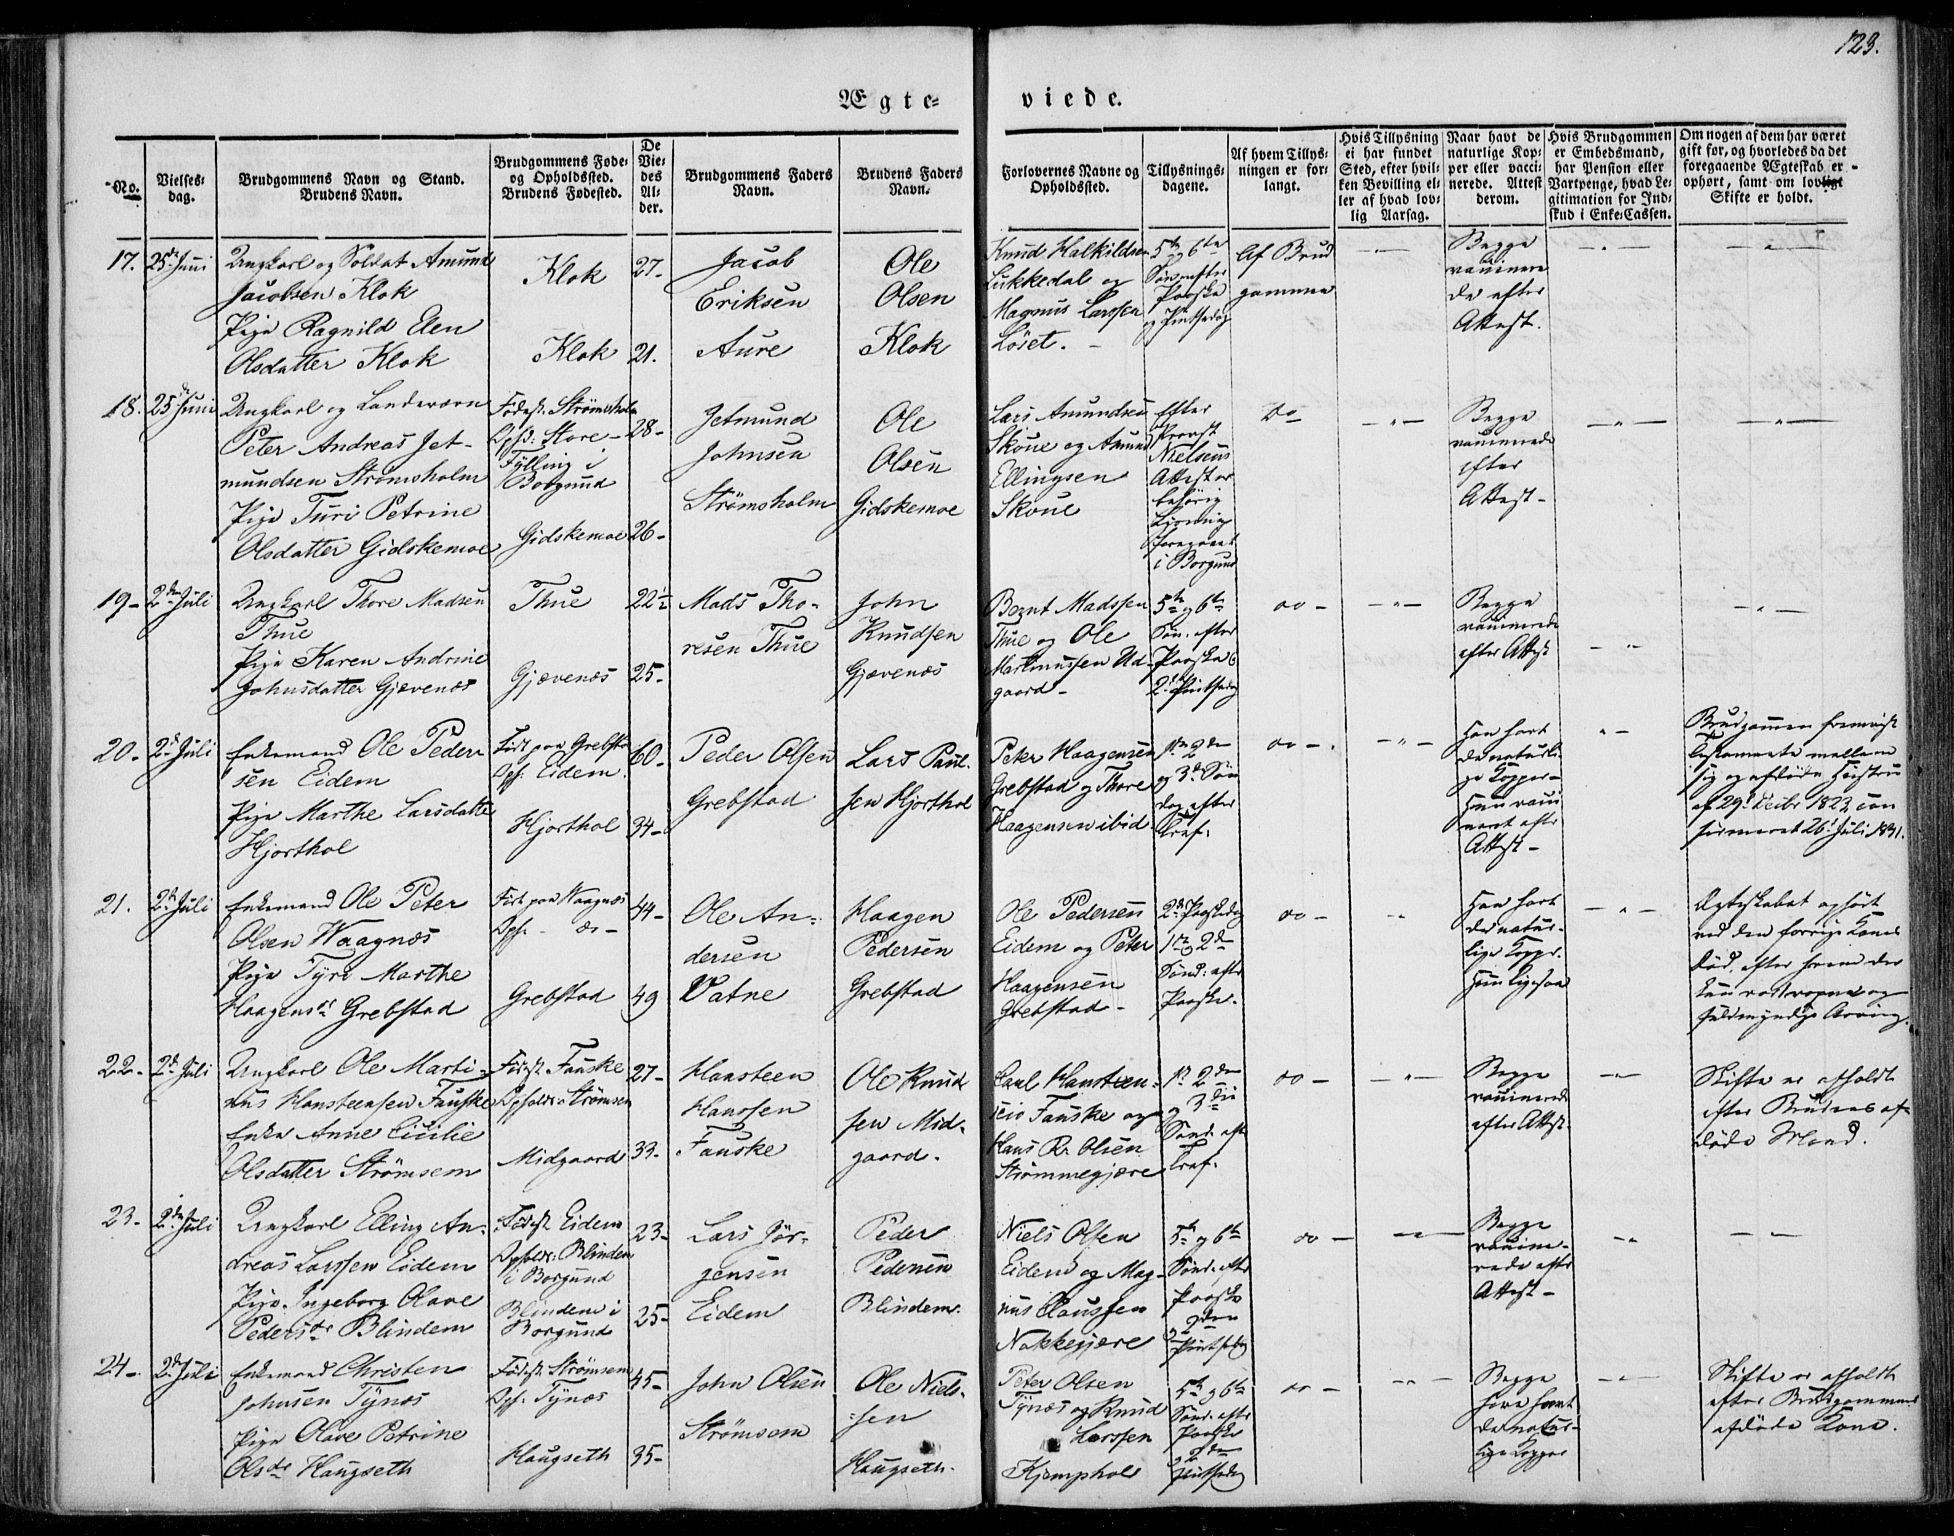 123.
Ægte-
viede.
No.
Vielses-
dag.
Brudgommens Navn og Stand.
Brudens Navn.
Brudgommens Føde-
og Opholdssted.
Brudens Fødested.
De
Vie-
des
Al-
der.
Brudgommens Faders
Navn.
Brudens Faders
Navn.
Forlovernes Navne og
Opholdssted.
Tillysnings-
dagene.
Af hvem Tillys-
ningen er for-
langt.
Hvis Tillysning
ei har fundet
Sted, efter hvil-
ken Bevilling el-
ler af hvad lov-
lig Aarsag.
Naar havt de
naturlige Kop-
per eller vacci-
nerede. Attest
derom.
Hvis Brudgommen
er Embedsmand,
har Pension eller
Vartpenge, hvad Le-
gitimation for Ind-
skud i Enke-Cassen.
Om nogen af dem har været
gift for, og hvorledes da det
foregaaende Ægteskab er
ophørt, samt om lovligt
Skifte er holdt.
17.
25de Juni
Ungkarl og Soldat Amund
Jacobsen Klok
Pige Ragnild Elen
Olsdatter Klok
Klok
Klok
27-
21.
Jacob
Eriksen
Aure
Ole
Olsen
Klok
Knud Halkildsen
Lukkedal og
Magnus Larssen
Løset. -
5te og 6te
Søn. efter
Paaske
og Pintsedag
Af Brud
gommen
Begge
vaccinere
de efter
Attest.
18.
25de Juni
Ungkarl og Landeværn
Peter Andreas Jet-
mundsen Strømsholm
Pige Turi Petrine
Olsdatter Gidskemoe
Fødest: Strømsholm
Opst: Store-
Fylling i
Borgund
Gidskemoe
28-
26-
Jetmund
Johnsen
Strømsholm
Ole
Olsen
Gidskemoe
Lars Amundsen
Skoue og Amund
Ellingsen
Skoue
Efter
Provst
Nielsens
Attest er
behørig
Lysning
foregaaet
i Borgund
Do
Begge
vaccinerede
efter
Attest-
19-
2den Juli
Ungkarl Thore Madsen
Thue
Pige Karen Andrine
Johnsdatter Gjævenæs
Thue
Gjævenæs
22½
25-
Mads Tho-
resen Thue
John
Knudsen
Gjævenæs
Bernt Madssen
Thue og Ole
Martinussen Ud-
gaard-
5te og 6te
Søn. efter
Paaske &
2d Pintsedag
do -
Begge
vaccinerede
efter Attest
20.
2d Juli
Enkemand Ole Peder-
sen Eidem
Pige Marthe Larsdatter
Hjorthol
Født paa Grebstad
Opst. Eidem.
Hjorthol
60-
34-
Peder Olsen
Grebstad
Lars Paul-
sen Hjorthol
Peter Haagensen
Grebstad og Thore
Haagensen ibid.
1ste 2den
og 3d Søn
dag efter
Tref:
do -
Han havt
de naturli-
ge Kopper-
Hun vacci
neret efter
Attest -
Brudgommen fremviist
Testamente mellem
sig og afdøde Hustru
af 29d Decbr 1823, con
firmeret 26d Juli 1831.
21.
2d Juli
Enkemand Ole Peter
Olsen Waagnæs
Pige Tyri Marthe
Haagensdr Grebstad
Født paa Waagnæs
Opst. - do -
Grebstad
44-
49
Ole An-
dersen
Vatne
Haagen
Pedersen
Grebstad
Ole Pedersen
Eidem og Peter
Haagensen
Grebstad -
2d Paaskedag
1ste & 2den
Sønd: efter
Paaske.
do -
Han havt
de natur-
lige Kopper.
Hun ligesaa
Ægteskabet ophørt
ved den forrige Kones
Død, efter hvem der
kun var voxne og
fuldmyndige Arving.
22-
2d Juli
Ungkarl Ole Marti-
nus Hansteensen Fauske
Enke Anne Cicilie
Olsdatter Strømsem
Fødest. Fauske
Opholds: Strømsem
Midgaard
27-
33-
Hansteen
Hanssen
Fauske
Ole Knud
sen Mid-
gaard.
Paul Hansteen-
sen Fauske og
Hans R. Olsen
Strømmegjære
1st 2den
og 3die
Sønd. eft
Tref.
do -
Begge
vaccinerede
efter Attest.
Skifte er afholdt
efter Brudens af-
døde Mand.
23-
2den Juli
Ungkarl Elling An-
dreas Larssen Eidem
Pige Ingeborg Olave
Pedersdr Blindem
Fødest. Eidem
Opholds: Blindem
i Borgund
Blindem i
Borgund
23-
25-
Lars Jør-
gensen
Eidem
Peder
Pedersen
Blindem
Niels Olsen
Eidem og Mag-
nus Claussen
Nakkegjære
5te og 6te
Sønd. efter
Paaske
og 2den
Pintsedag
do -
Begge
vaccine-
rede efter
Attest-
24-
2d Juli
Enkemand Christen
Johnsen Tynæs
Pige Olave Petrine
Olsdr Haugseth
Fødest. Strømsem
Opst. Tynæs
Haugseth
45-
35-
John Olsen
Strømsem
Ole Niels-
sen
Haugseth.
Peter Olsen
Tynæs og Knud
Larssen
Kjemphol
5te og 6te
Sønd. efter
Paaske
og 2den
Pintsedag
do -
Begge
have havt
de natur-
lige Kopper
Skifte er afholdt
efter Brudgommens
afdøde Kone.